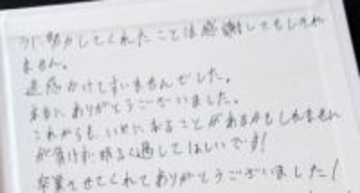 努力してくれたことは感謝してもしきれ
ません。
迷惑かけてすいませんでした。
本当にありがとうございました。
これからもいやになることがあるかもしれません
が負けず明るく過してほしいです!
卒業させてくれてありがとうございました!